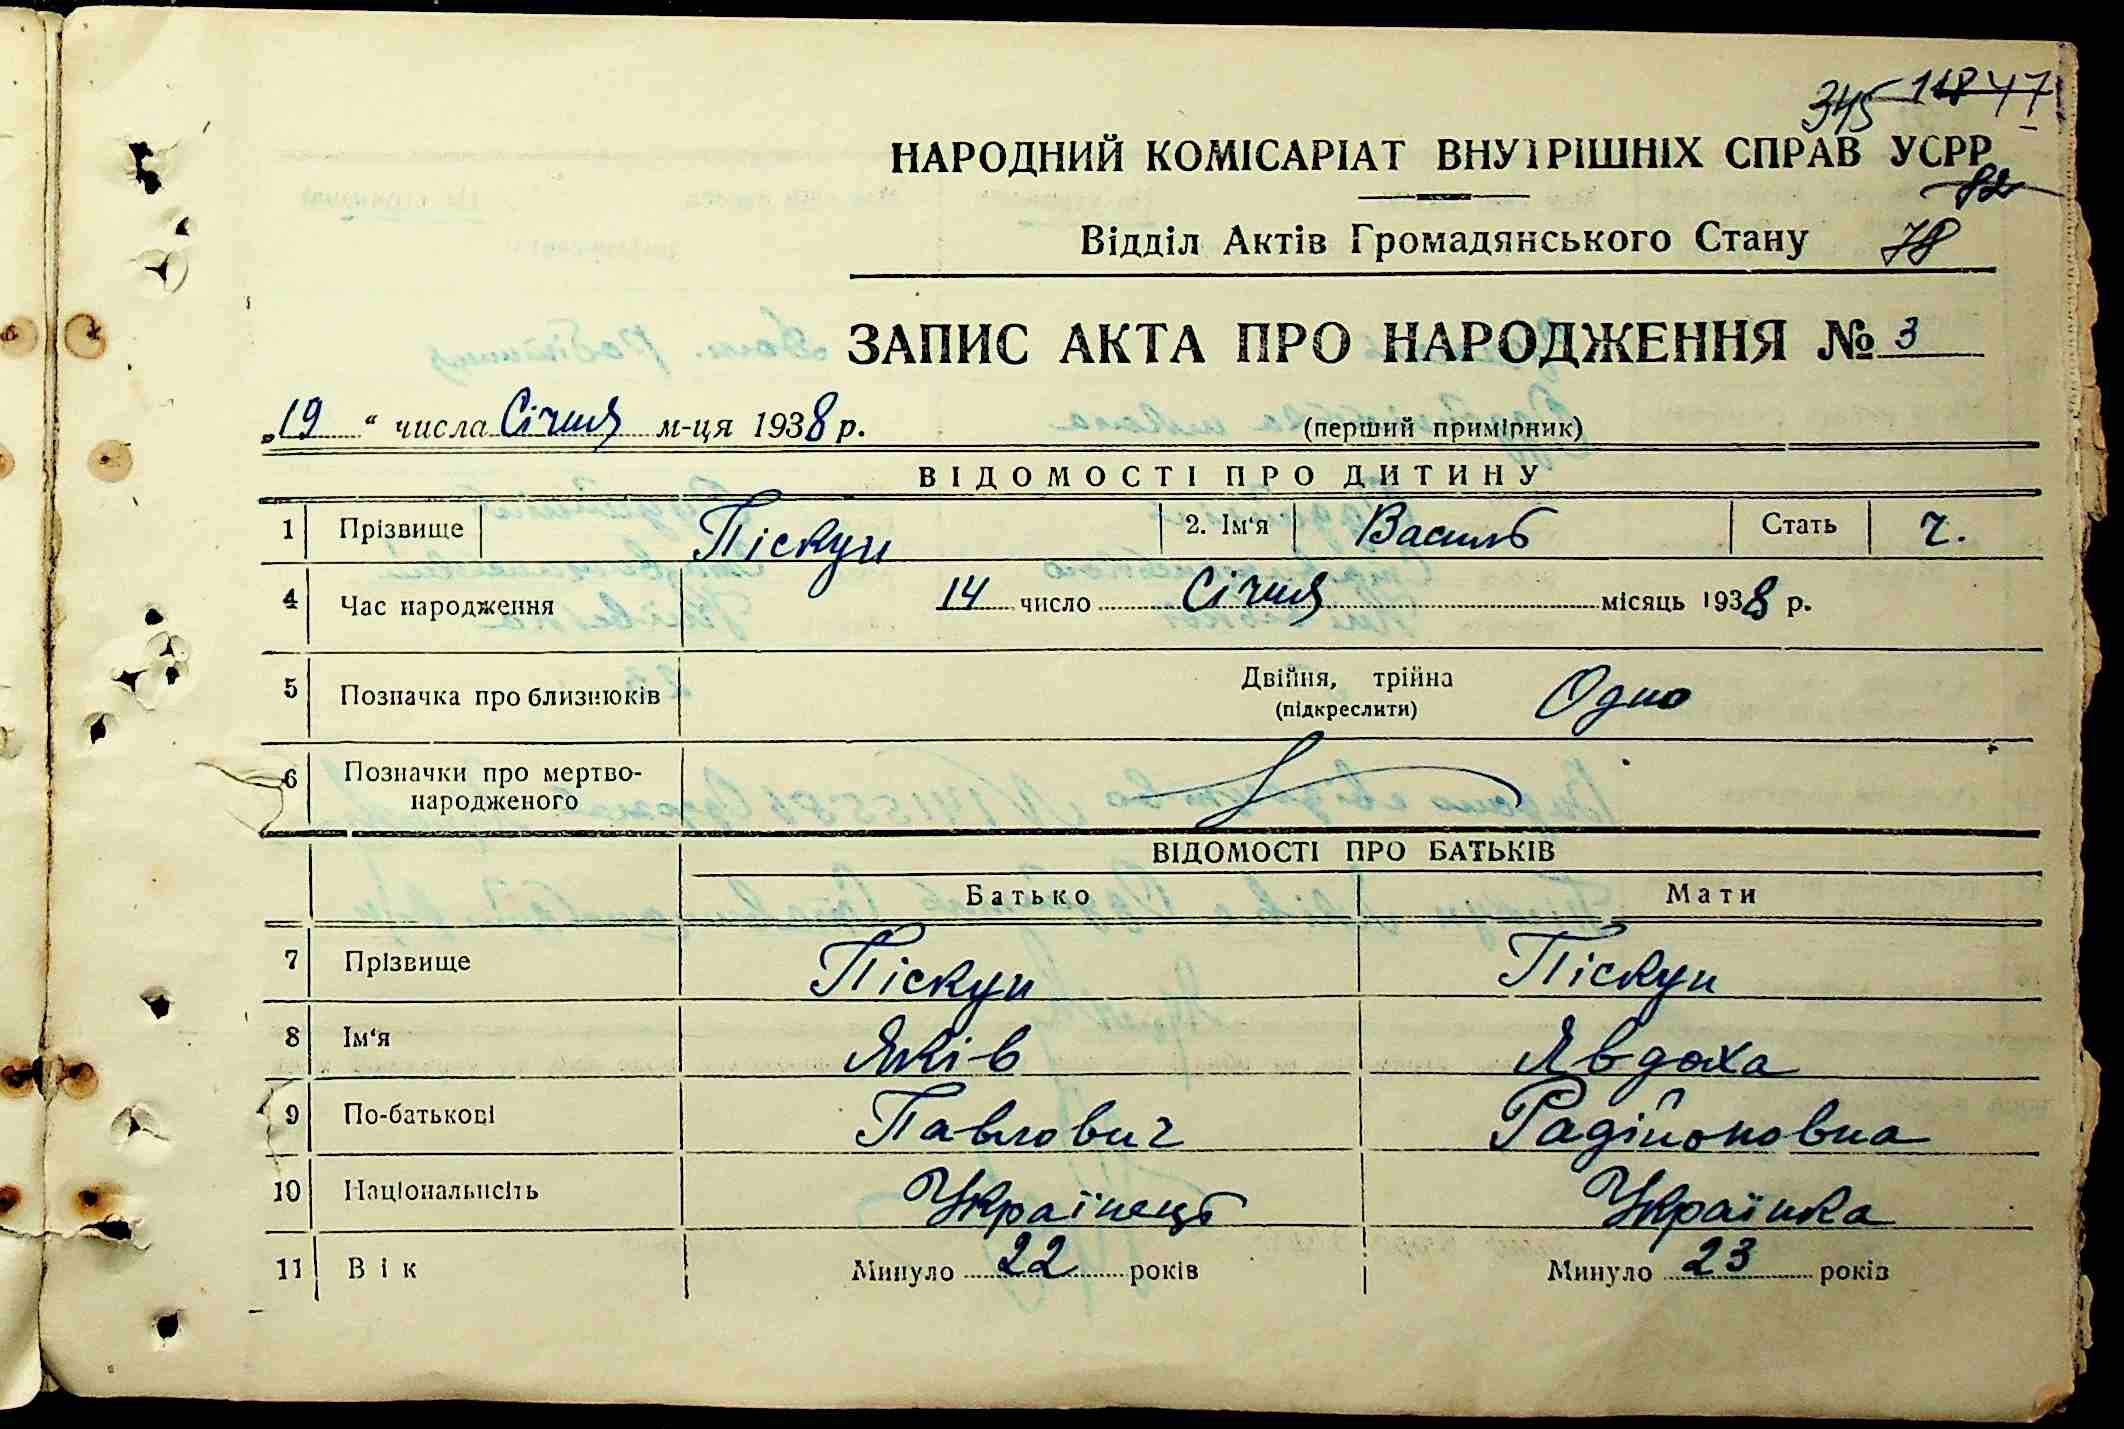 345 118 47
НАРОДНИЙ КОМІСАРІАТ ВНУТРІШНІХ СПРАВ УСРР
82
Відділ Актів Громадянського Стану 78
ЗАПИС АКТА ПРО НАРОДЖЕННЯ № 3
„19“ числа Січня м-ця 1938 р. (перший примірник)
ВІДОМОСТІ ПРО ДИТИНУ
1 Прізвище Піскун 2. Ім'я Василь Стать ч.
4 Час народження 14 число Січня місяць 1938 р.
5 Позначка про близнюків Двійня, трійна (підкреслити) Одно
6 Позначки про мертво-
народженого
ВІДОМОСТІ ПРО БАТЬКІВ
Батько Мати
7 Прізвище Піскун Піскун
8 Ім'я Яків Явдоха
9 По-батькові Павлович Радійоновна
10 Національність Українець Українка
11 Вік Минуло 22 років Минуло 23 років